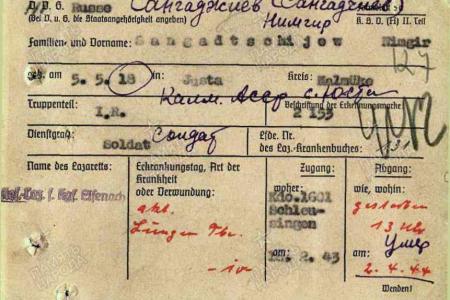 D. V. G. Russe Сангаджиев (Сангаджиев)
(Bei D. u. G. die Staatsangehörigkeit angeben) Нимгир K. S. O. (F.) II. Teil
Familien- und Vorname: Sangadtschijew Nimgir
127
geb. am 5. 5. 18 in: Justa Kreis: Kalmüko
Калм. Асср с. Юста
Truppenteil: I.R. Beschriftung der Erkennungsmarke: 2 153
Dienstgrad: Soldat солдат Lfde. Nr. des Laz.-Krankenbuches: 131
Name des Lazaretts: Erkrankungstag, Art der Krankheit oder Verwundung: Zugang: Abgang:
woher: wie, wohin:
Kgf.-Laz. f. Kgf. Eisenach
akt. Lungen Tbc.
Kdo.1601 Schleusingen
gestorben
13 Uhr
умер
am: 2. 43 am: 2. 4. 44
Wenden!